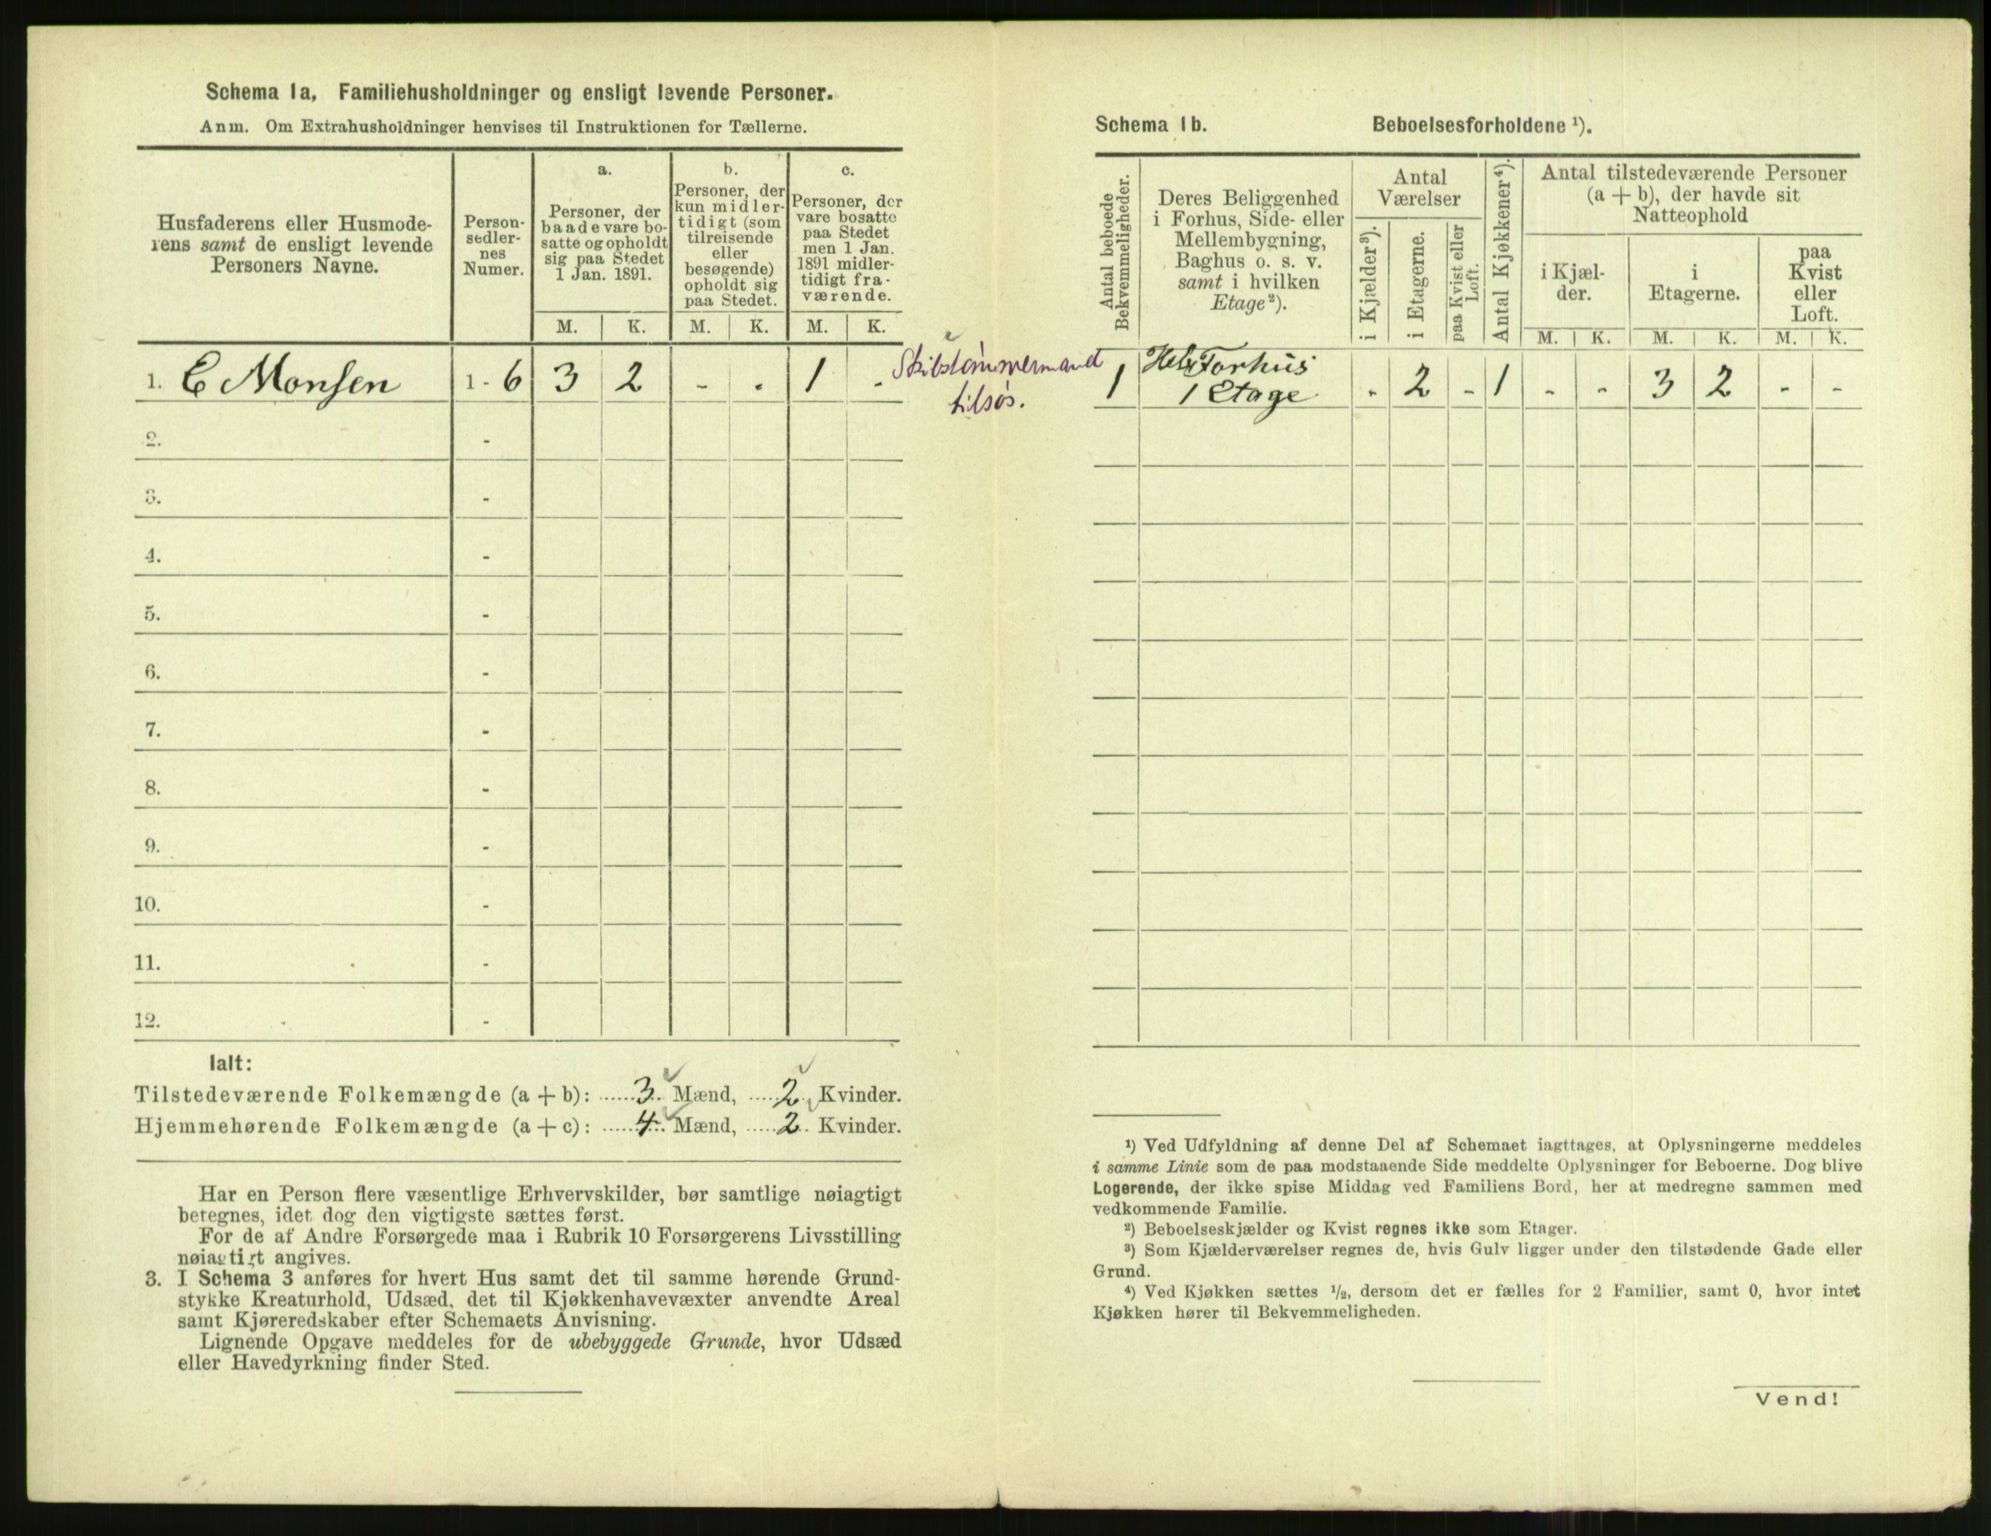 Schema 1a, Familiehusholdninger og ensligt levende Personer.
Anm. Om Extrahusholdninger henvises til Instruktionen for Tællerne.
Husfaderens eller Husmode-
rens samt de ensligt levende
Personers Navne.
Person-
sedler-
nes
Numer.
a.
Personer, der
baade vare bo-
satte og opholdt
sig paa Stedet
1 Jan. 1891.
b.
Personer, der
kun midler-
tidigt (som
tilreisende
eller
besøgende)
opholdt sig
paa Stedet.
c.
Personer, der
vare bosatte
paa Stedet
men 1 Jan.
1891 midler-
tidigt fra-
værende.
M. K. M. K. M. K.
1. C Monsen 1 - 6 3 2 - - 1 -
Skibstømmermand
tilsøs.
2. -
3. -
4. -
5. -
6. -
7. -
8. -
9. -
10. -
11. -
12. -
Ialt:
Tilstedeværende Folkemængde (a + b): 3 Mænd, 2 Kvinder.
Hjemmehørende Folkemængde (a + c): 4 Mænd, 2 Kvinder.
Har en Person flere væsentlige Erhvervskilder, bør samtlige nøiagtigt
betegnes, idet dog den vigtigste sættes først.
For de af Andre Forsørgede maa i Rubrik 10 Forsørgerens Livsstilling
nøiagtigt angives.
3. I Schema 3 anføres for hvert Hus samt det til samme hørende Grund-
stykke Kreaturhold, Udsæd, det til Kjøkkenhavevæxter anvendte Areal
samt Kjøreredskaber efter Schemaets Anvisning.
Lignende Opgave meddeles for de ubebyggede Grunde, hvor Udsæd
eller Havedyrkning finder Sted.
Schema 1b. Beboelsesforholdene ¹).
Antal beboede
Bekvemmeligheder.
Deres Beliggenhed
i Forhus, Side- eller
Mellembygning,
Baghus o. s. v.
samt i hvilken
Etage²).
Antal
Værelser
i Kjælder³).
i Etagerne.
paa Kvist eller
Loft.
Antal Kjøkkener⁴).
Antal tilstedeværende Personer
(a + b), der havde sit
Natteophold
i Kjæl-
der.
i
Etagerne.
paa
Kvist
eller
Loft.
M. K. M. K. M. K.
Forhus
1 1 Etage - 2 - 1 - - 3 2 - -
¹) Ved Udfyldning af denne Del af Schemaet iagttages, at Oplysningerne meddeles
i samme Linie som de paa modstaaende Side meddelte Oplysninger for Beboerne. Dog blive
Logerende, der ikke spise Middag ved Familiens Bord, her at medregne sammen med
vedkommende Familie.
²) Beboelseskjælder og Kvist regnes ikke som Etager.
³) Som Kjælderværelser regnes de, hvis Gulv ligger under den tilstødende Gade eller
Grund.
⁴) Ved Kjøkken sættes ½, dersom det er fælles for 2 Familier, samt 0, hvor intet
Kjøkken hører til Bekvemmeligheden.
Vend!